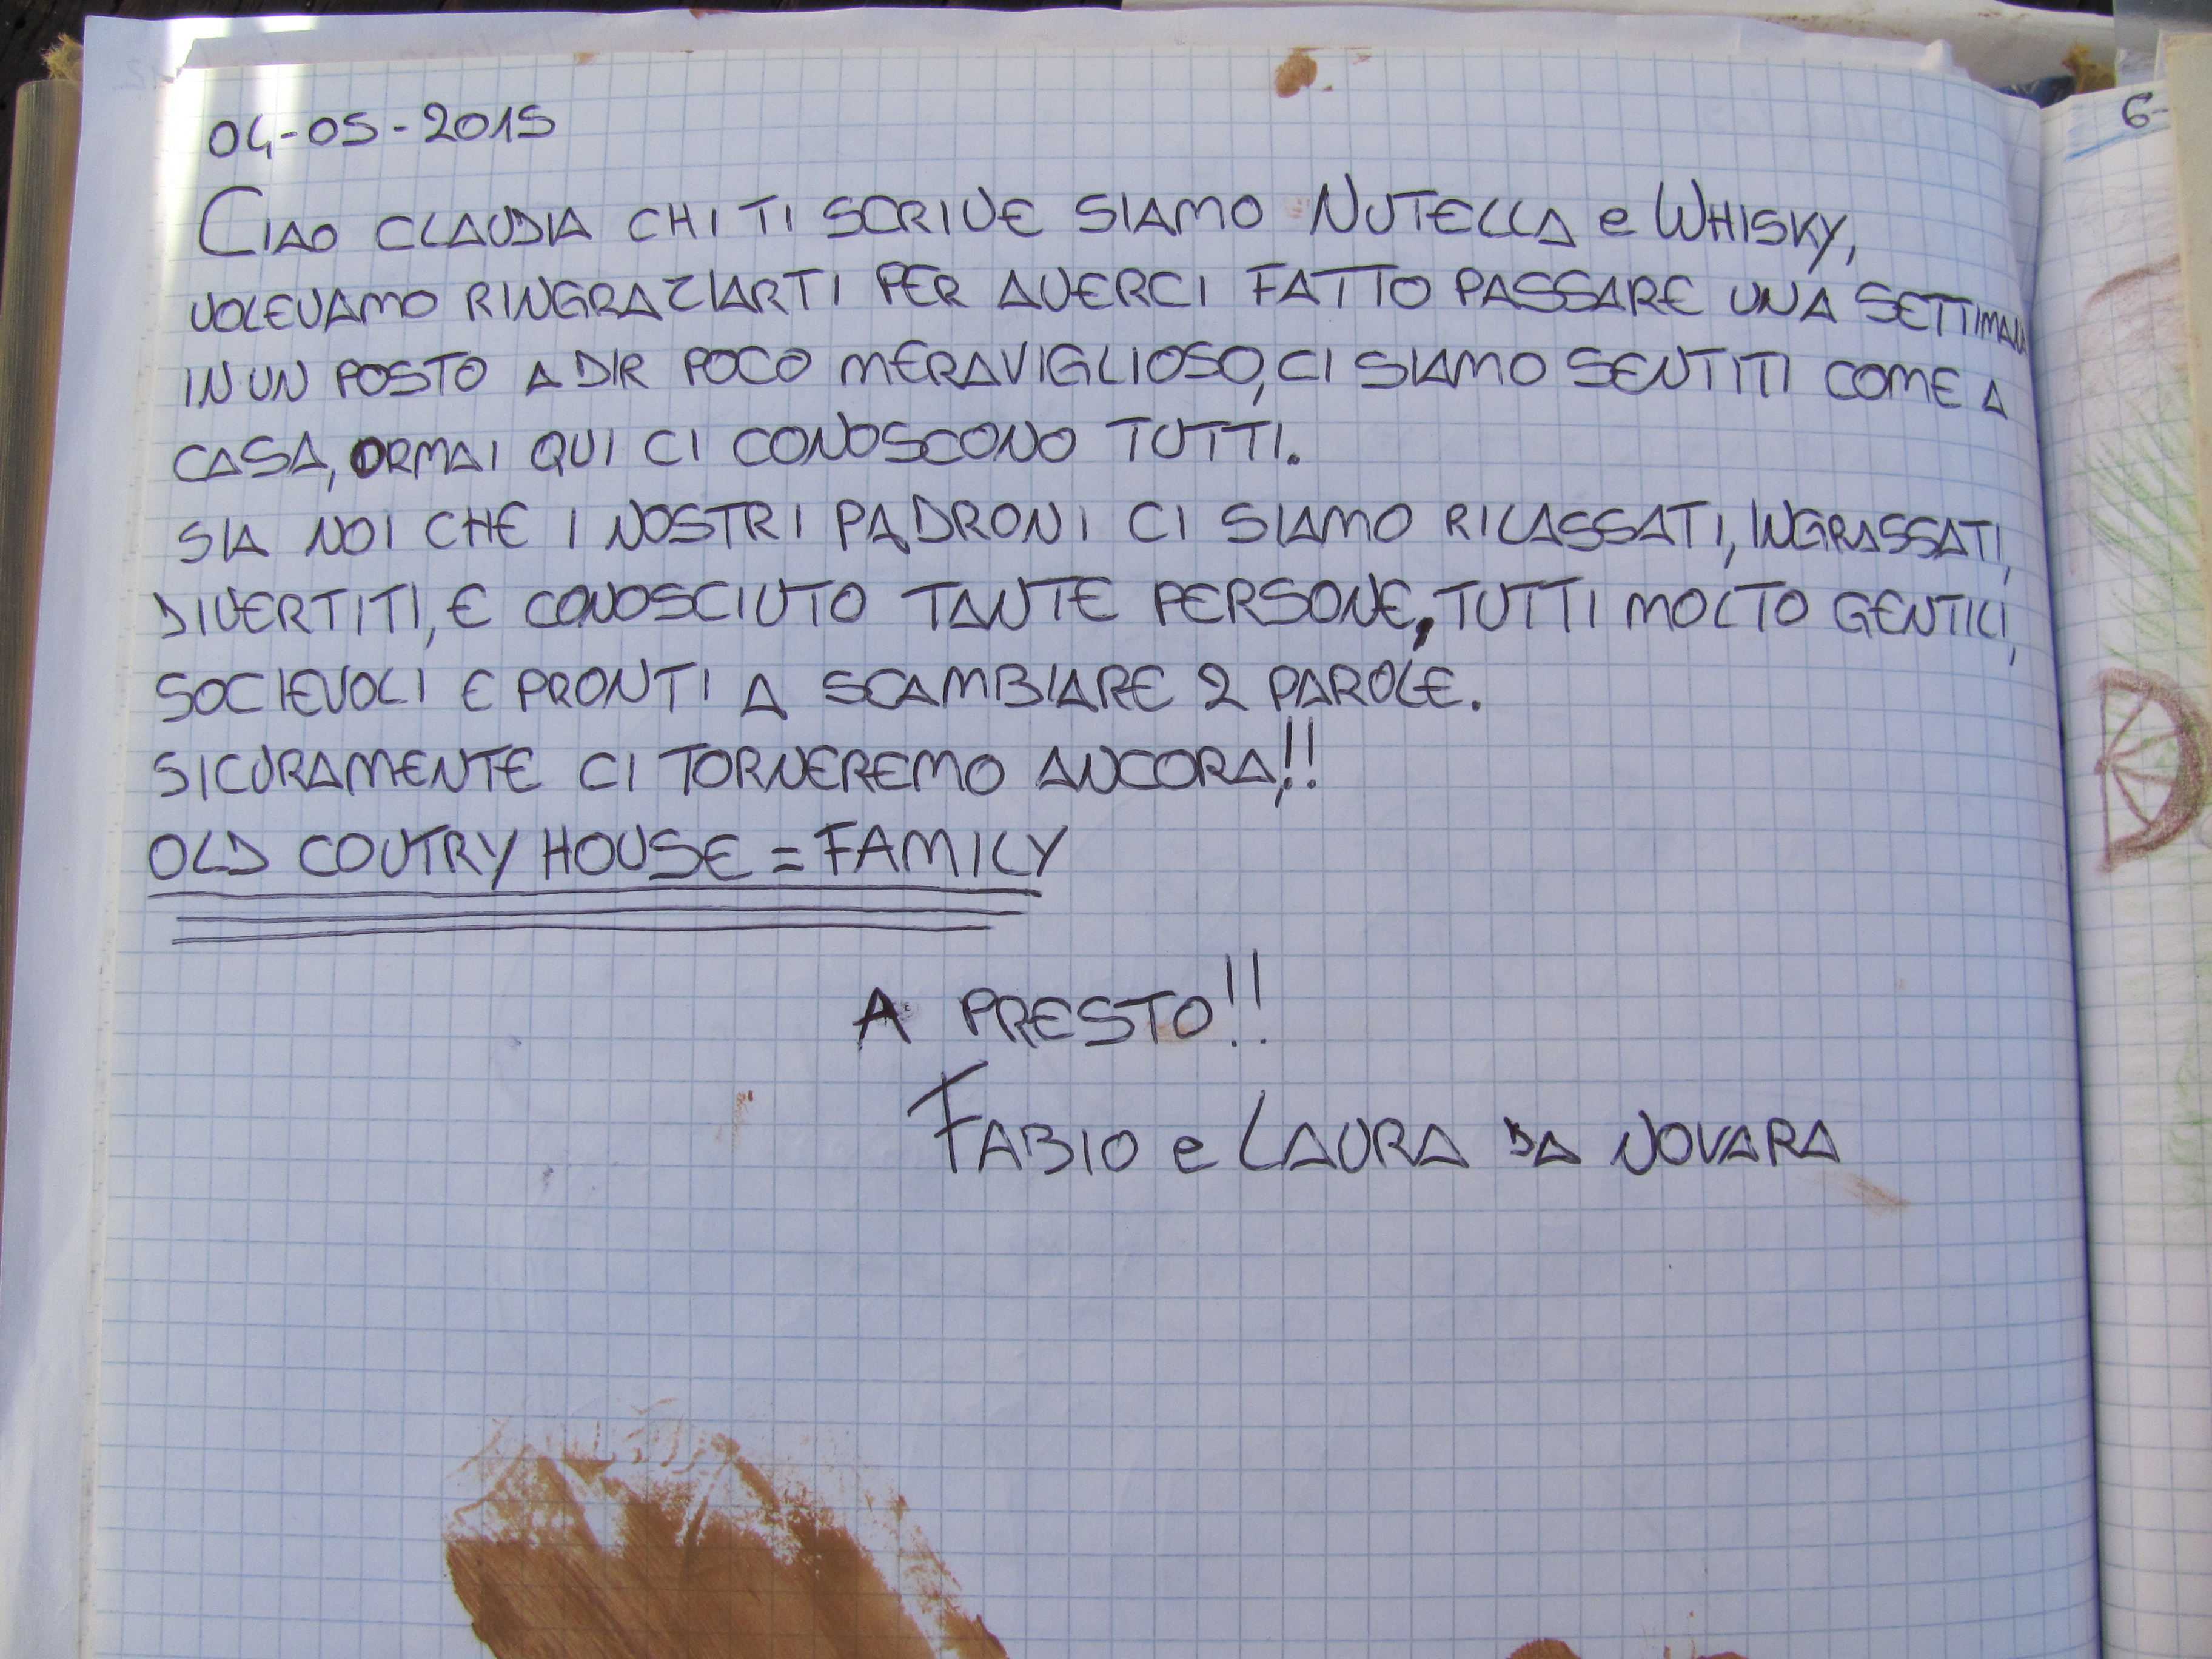 04-05-2015
CIAO CLAUDIA CHI TI SCRIVE SIAMO NUTELLA e WHISKY,
VOLEVAMO RINGRAZIARTI PER AVERCI FATTO PASSARE UNA SETTIMANA
IN UN POSTO A DIR POCO MERAVIGLIOSO, CI SIAMO SENTITI COME A
CASA, ORMAI QUI CI CONOSCONO TUTTI.
SIA NOI CHE I NOSTRI PADRONI CI SIAMO RILASSATI, INGRASSATI,
DIVERTITI, E CONOSCIUTO TANTE PERSONE, TUTTI MOLTO GENTILI,
SOCIEVOLI E PRONTI A SCAMBIARE 2 PAROLE.
SICURAMENTE CI TORNEREMO ANCORA!!
OLD COUTRY HOUSE = FAMILY
A PRESTO!!
FABIO e LAURA DA NOVARA